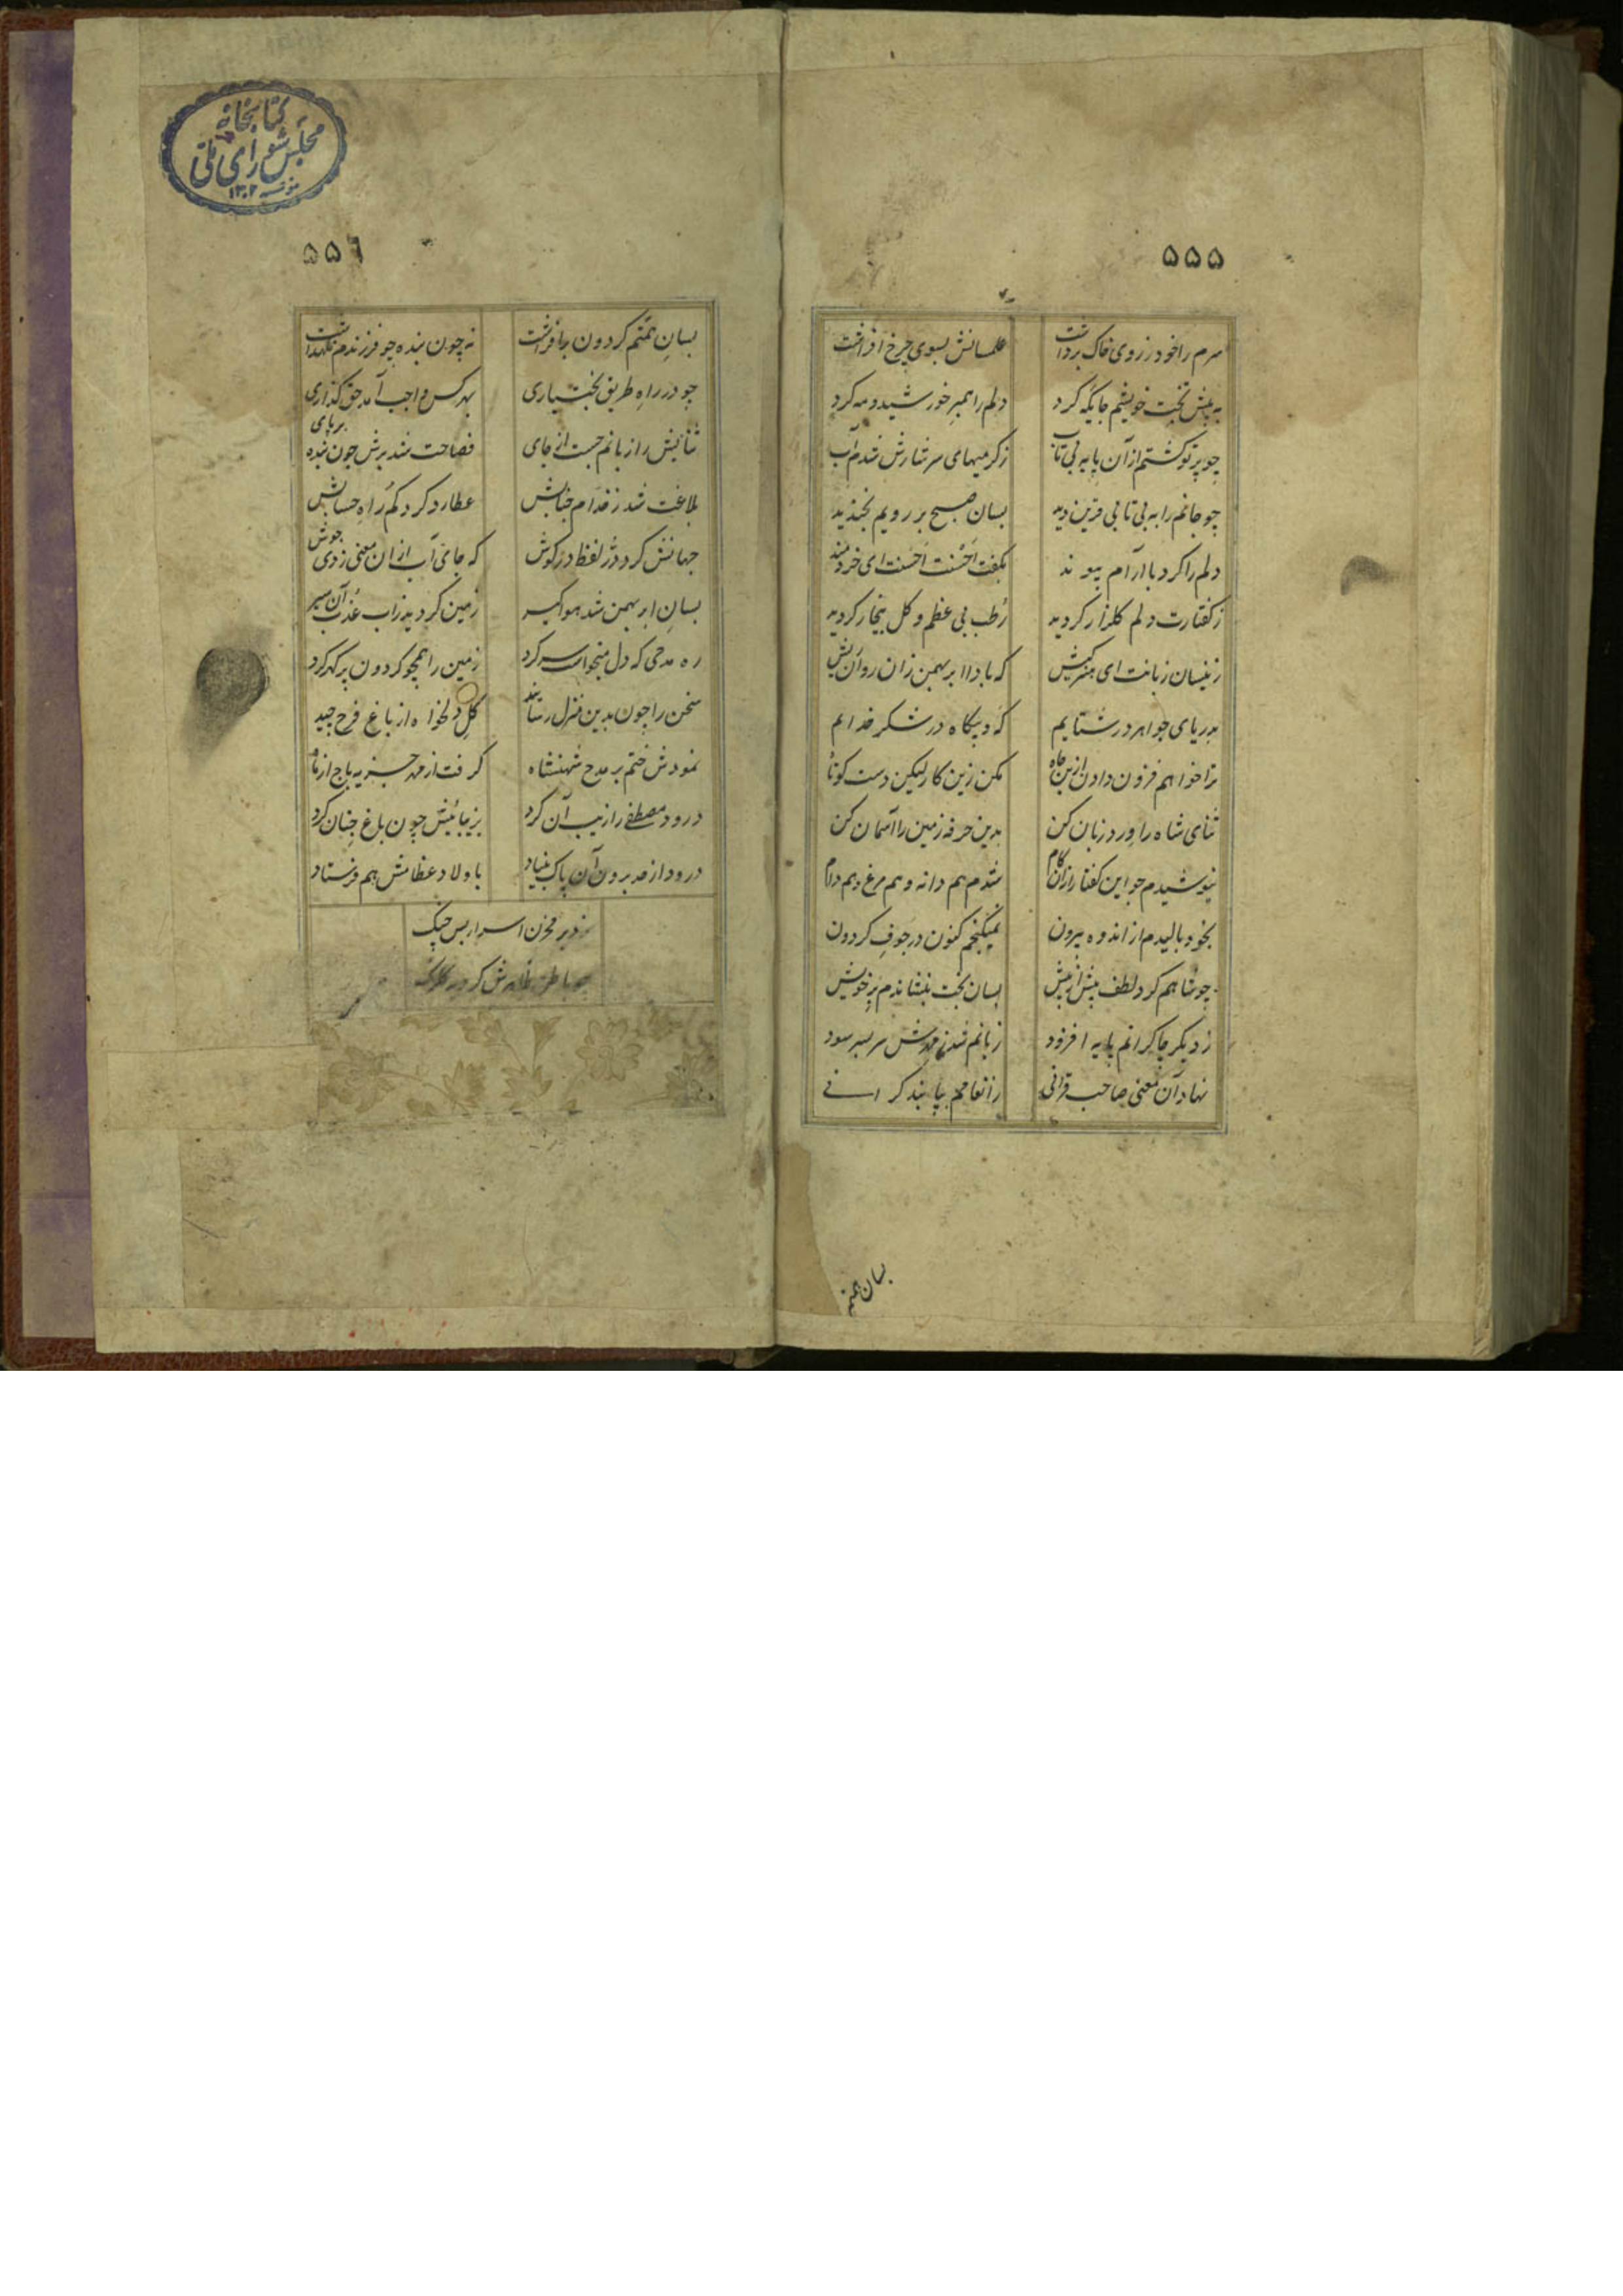 ۵۵۵
سرم را خود ز روی خاک برداشت
علمسانش بسوی چرخ افراشت
به پیش تخت خویشم جایگه کرد
دلم را همبر خورشید و مه کرد
چو پرتو گشتم از آن پایه بی تاب
ز گرمیهای سرشارش شدم آب
چو جانم را به بی تابی قرین دید
بسان صبح بر رویم بخندید
دلم را کرد با آرام پیوند
بگفت اَحْسَنْت اَحْسَنت ای خردمند
ز گفتارت دلم گلزار گردید
رُطب بی عظم و گل بیخار گردید
ز نیسان زبانت ای هنر کیش
که بادا ابر بهمن زان روان ریش
بدریای جواهر در شتایم
که و بیگاه در شکر خدایم
ترا خواهم فزون دادن ازین جاه
مکن زین کار لیکن دست کوتاه
ثنای شاه را ورد زبان کن
بدین حرفه زمین را آسمان کن
نیوشیدم چو این گفتار ازان کام
شدم هم دانه و هم مرغ و هم دام
بخود بالیدم از اندوه بیرون
نمیگنجم کنون در جوف گردون
چو شاهم کرد لطف بیش از پیش
بسان بخت بنشاندم بر خویش
ز دیگر چاکرانم پایه افزود
زبانم شد ز مدحش سر بسر سود
نهاد آن معنی صاحب قرانی
ز انعامم بپا بند گرانی
بسان همتم
۵۵۶
بسان همتم گردون برافراشت
نه چون بنده چو فرزندم نگهداشت
چو در راه طریق بخت یاری
بهر کس واجب آمد حق گذاری
ثنایش را زبانم جست از جای
فصاحت شد برش چون بنده بر پای
بلاغت شد ز خدام جنابش
عطارد کرد گم راه حسابش
جهانش کرد دُرّ لفظ در گوش
که جای آب ازان معنی زدی جوش
بسان ابر بهمن شد هوا گیر
زمین گردید زاب عُذب آن سیر
ره مدحی که دل میخواست سر کرد
زمین را همچو گردون پر گهر کرد
سخن را چون بدین منزل رسانید
گل دلخواه از باغ فرح چید
نمودش ختم بر مدح شهنشاه
گرفت از مهر جزیه باج از ماه
درود مصطفی را زیب آن کرد
بزیبائیش چون باغ جنان کرد
درود از حد برون آن پاک بنیاد
باولاد عظامش هم فرستاد
مخزن اسرار بس
کتابخانه
مجلس شورای ملی
مؤسسه ۱۳۰۲